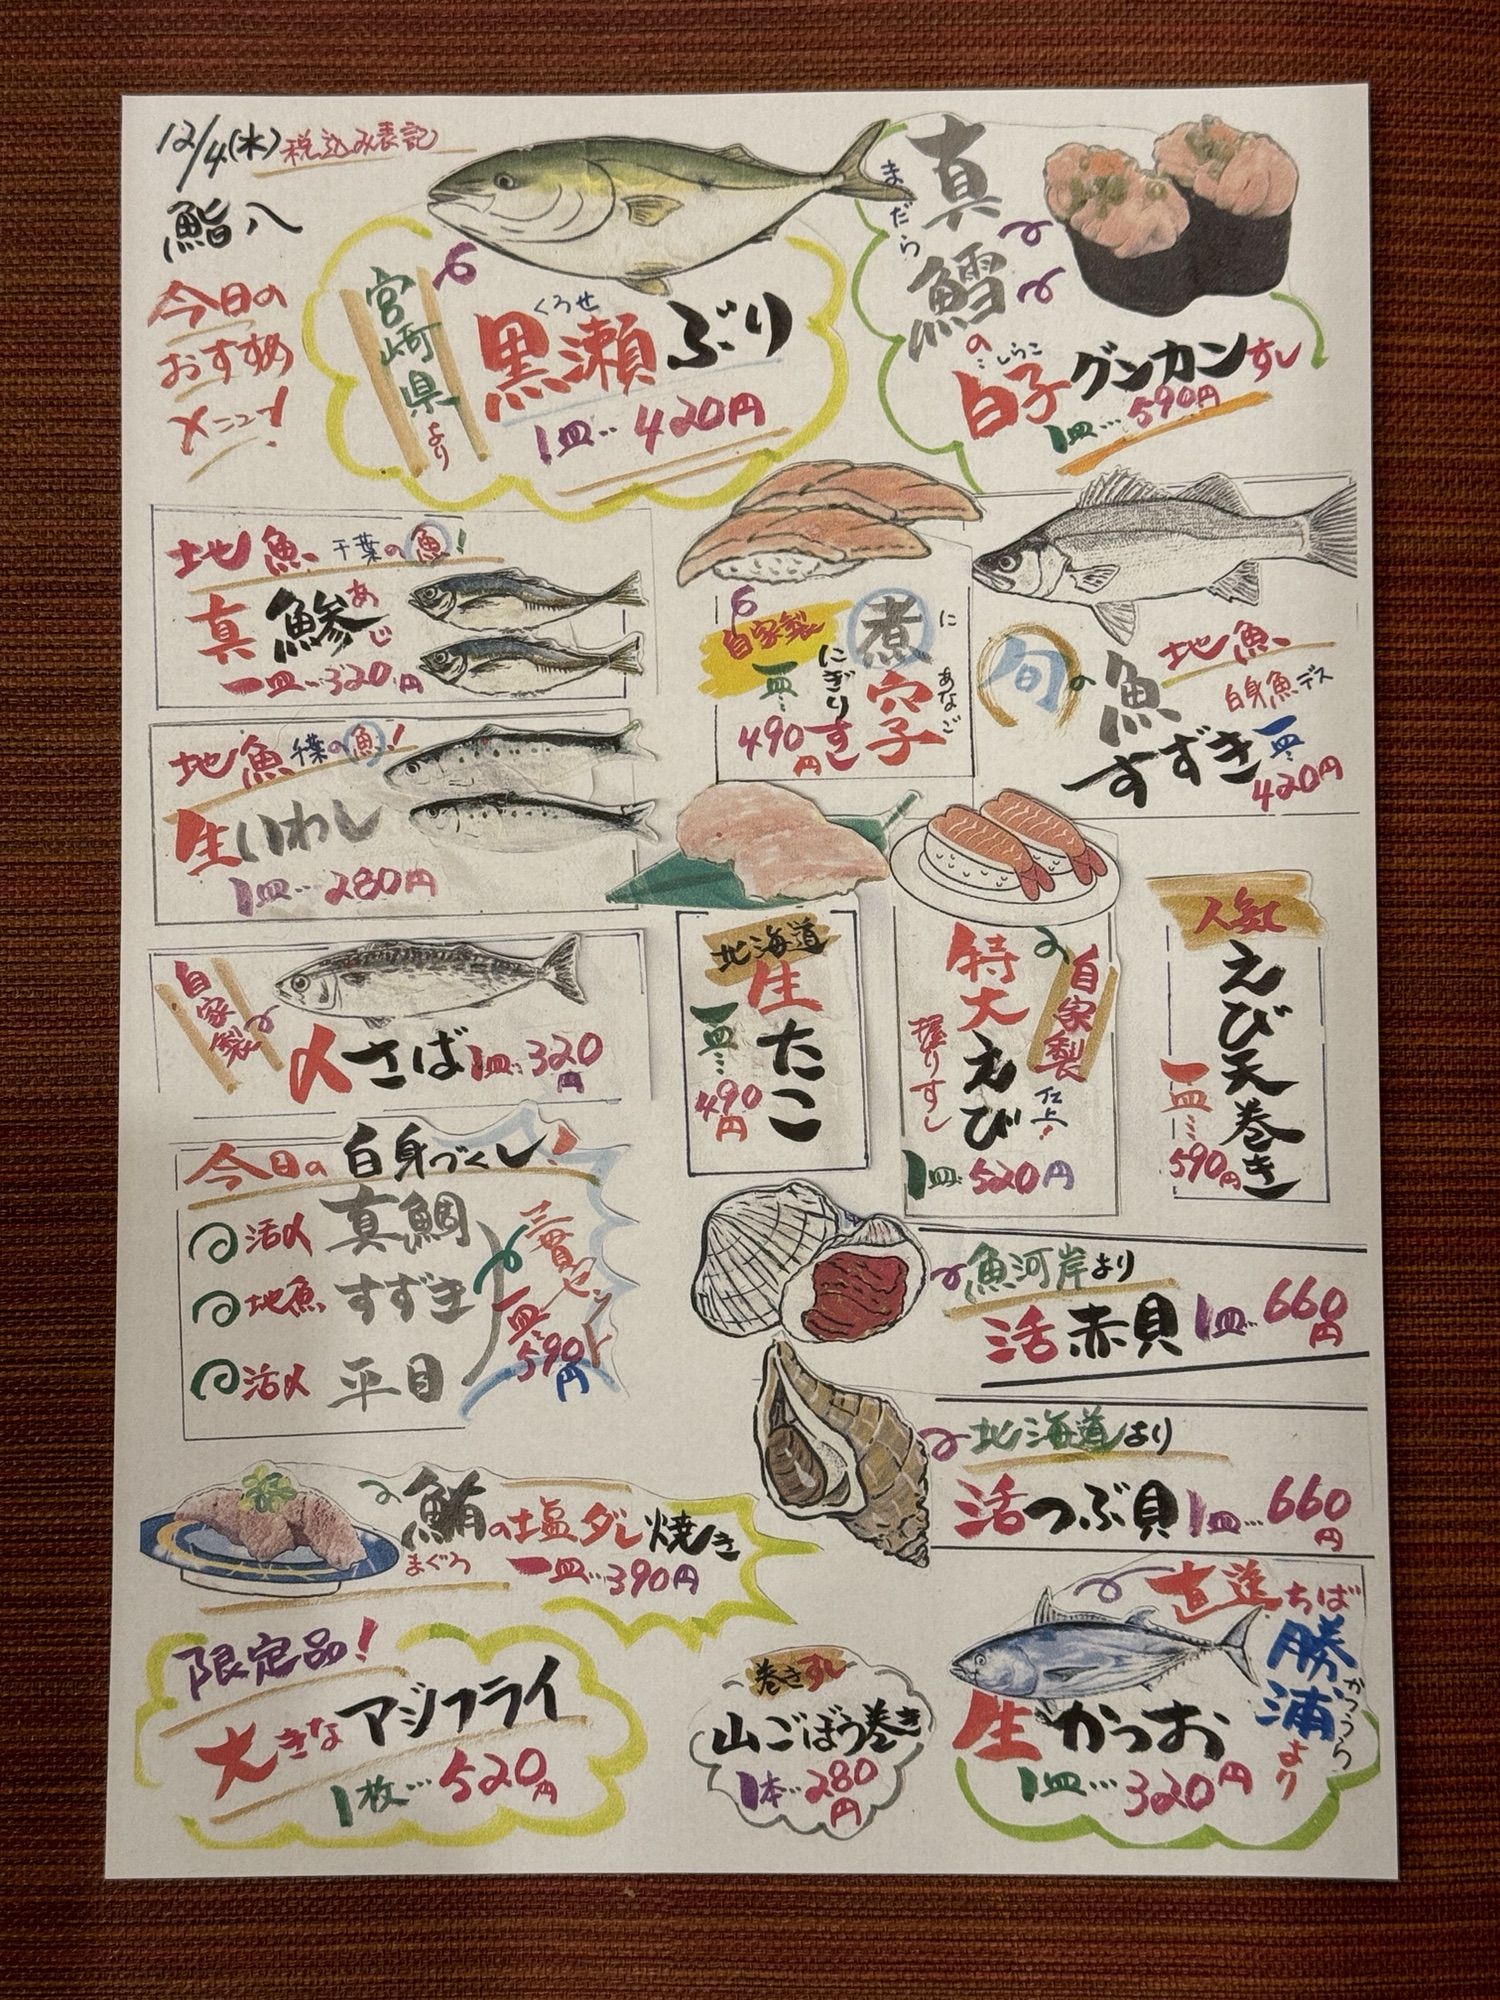 12/4(水)税込み表記
鮨八
今日の
おすすめ
メニュー!
宮崎県より
くろせ
黒瀬ぶり
1皿…420円
まだら
真鱈の
しらこ
白子グンカンすし
1皿…590円
地魚 千葉の魚!
真鯵
あじ
一皿…320円
地魚 千葉の魚!
生いわし
1皿…280円
自家製
〆さば 1皿…320円
自家製
煮穴子
にあなご
にぎりすし
一皿…490円
旬の魚
地魚
白身魚デス
すずき 一皿…420円
北海道
生たこ
一皿…490円
自家製仕上!
特大えび
握りすし
1皿…520円
人気
えび天巻き
一皿…590円
今日の白身づくし!
活〆 真鯛
地魚 すずき
活〆 平目
三貫セット
一皿…590円
魚河岸より
活赤貝 1皿…660円
北海道より
活つぶ貝 1皿…660円
鮪の塩ダレ焼き
まぐろ
一皿…390円
限定品!
大きなアジフライ
1枚…520円
巻きすし
山ごぼう巻き
1本…280円
直送ちば
勝浦より
かつうら
生かつお
1皿…320円